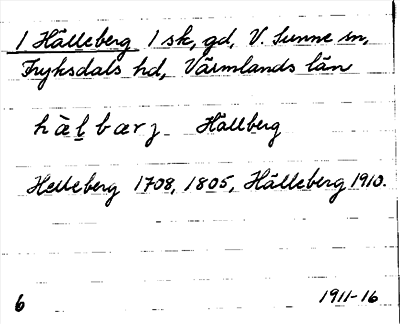 1 Hälleberg 1 sk, gd, V. Sunne sn,
Fryksdals hd, Värmlands län
hæ̀l̲bærj Hällberg
Helleberg 1708, 1805, Hälleberg 1910.
6 1911-16